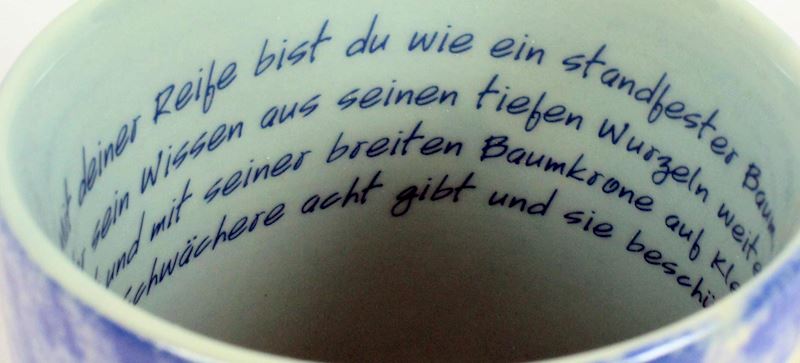 deiner Reife bist du wie ein standfester Baum
sein Wissen aus seinen tiefen Wurzeln
und mit seiner breiten Baumkrone auf
schwächere acht gibt und sie